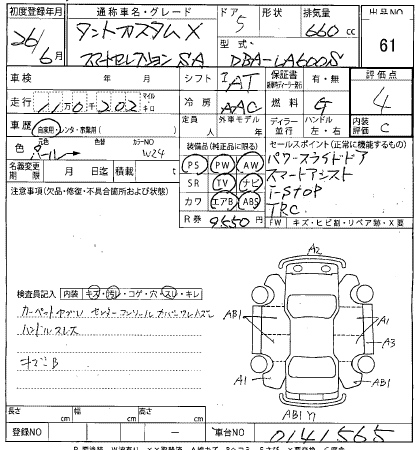 初度登録年月 通称車名・グレード ドア 形状 排気量 出品NO
26年 6月 タントカスタムX 5 660cc 61
スマートセレクションSA 型式 DBA-LA600S
車検 年 月 シフト IAT 保証書 有・無 評価点 4
走行 110202 マイル キロ 冷房 AAC 燃料 G 内装評価 C
車歴 自家用・レンタ・営業用( ) 定員 人 外車モデル 年 ディーラー 並行 ハンドル 左・右
色 元色 パール 色替 カラーNO W24
装備品(純正品に限る) セールスポイント(正常に機能するもの)
PS PW AW パワースライドドア
名義変更期限 月 日迄 積載 t SR TV ナビ スマートアシスト
注意事項(欠品・修復・不具合箇所および状態) カワ エアB ABS i-STOP
R券 9550円 TRC
FW キズ・ヒビ割・リペア跡・X要
A2
検査員記入 内装 キズ・汚レ・コゲ・穴・スレ・キレ
AB1 A1
ハンドルスレ A3
キズB A1 AB1
AB1 Y1
長さ cm 幅 cm 高さ cm
登録NO ー 車台NO 0141565